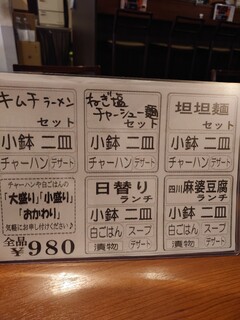 キムチラーメン
セット
小鉢 二皿
チャーハン デザート
ねぎ塩
チャーシュー麺
セット
小鉢 二皿
チャーハン デザート
坦坦麺
セット
小鉢 二皿
チャーハン デザート
チャーハンや白ごはんの
「大盛り」「小盛り」
「おかわり」
気軽にお申し付けください♪
全品 ¥980
日替り
ランチ
小鉢 二皿
白ごはん スープ
漬物 デザート
四川 麻婆豆腐
ランチ
小鉢 二皿
白ごはん スープ
漬物 デザート